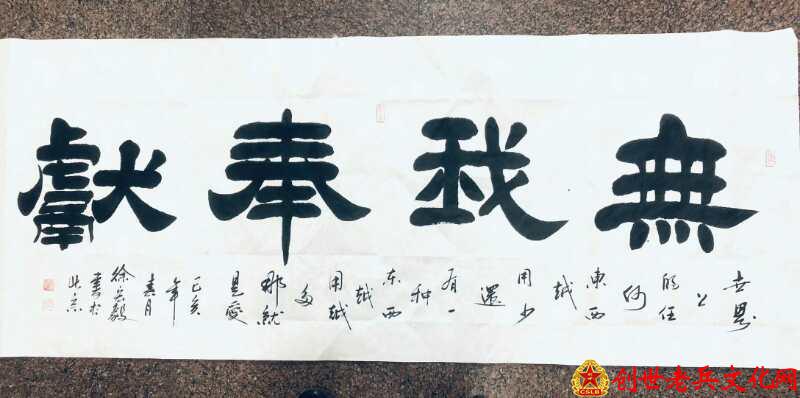 無我奉獻
世界
上
的任
何
東西
越
用少
還
有一
种
东西
越
用越
多
那就
是爱
己亥
年
春月
徐兵毅
書於
北京
创世老兵文化网
CSLB